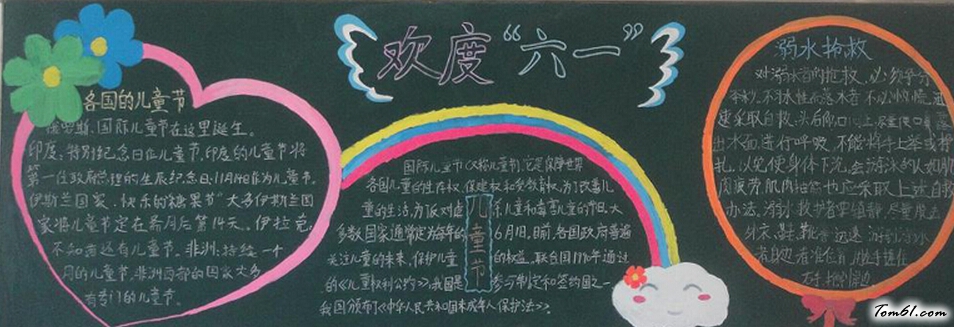 欢度“六一”
各国的儿童节
俄罗斯:国际儿童节在这里诞生。
印度:特别纪念日作儿童节,印度的儿童节将
第一任政府总理的生辰纪念日11月14日作为儿童节。
伊斯兰国家:快乐的“糖果节”大多伊斯兰国
家将儿童节定在斋月后第14天。伊拉克:
不知道还有儿童节。非洲:持续一个
月的儿童节,非洲西部的国家大多
有专门的儿童节。
国际儿童节(又称儿童节)它是保障世界
各国儿童的生存权、保健权和受教育权,为了改善儿
童的生活,为反对虐杀儿童和毒害儿童的节日大
多数国家通常定为每年的6月1日,目前,各国政府普遍
关注儿童的未来,保护儿童的权益,联合国1990年通过
的《儿童权利公约》,我国是参与制定和签约国之一
我国颁布了《中华人民共和国未成年人保护法》。
儿童节
溺水抢救
对溺水者的抢救,必须争分
夺秒,不习水性而落水者,不必惊慌,迅
速采取自救:头后仰口向上,尽量使口鼻露
出水面,进行呼吸,不能将手上举或挣
扎,以免使身体下沉,会游泳的人如肌
肉疲劳、肌肉抽筋也应采取上述自救
办法。溺水救护者要镇静,尽量脱去
外衣、鞋、靴等,迅速游到溺水
者附近,看准位置,用
Tom61.com